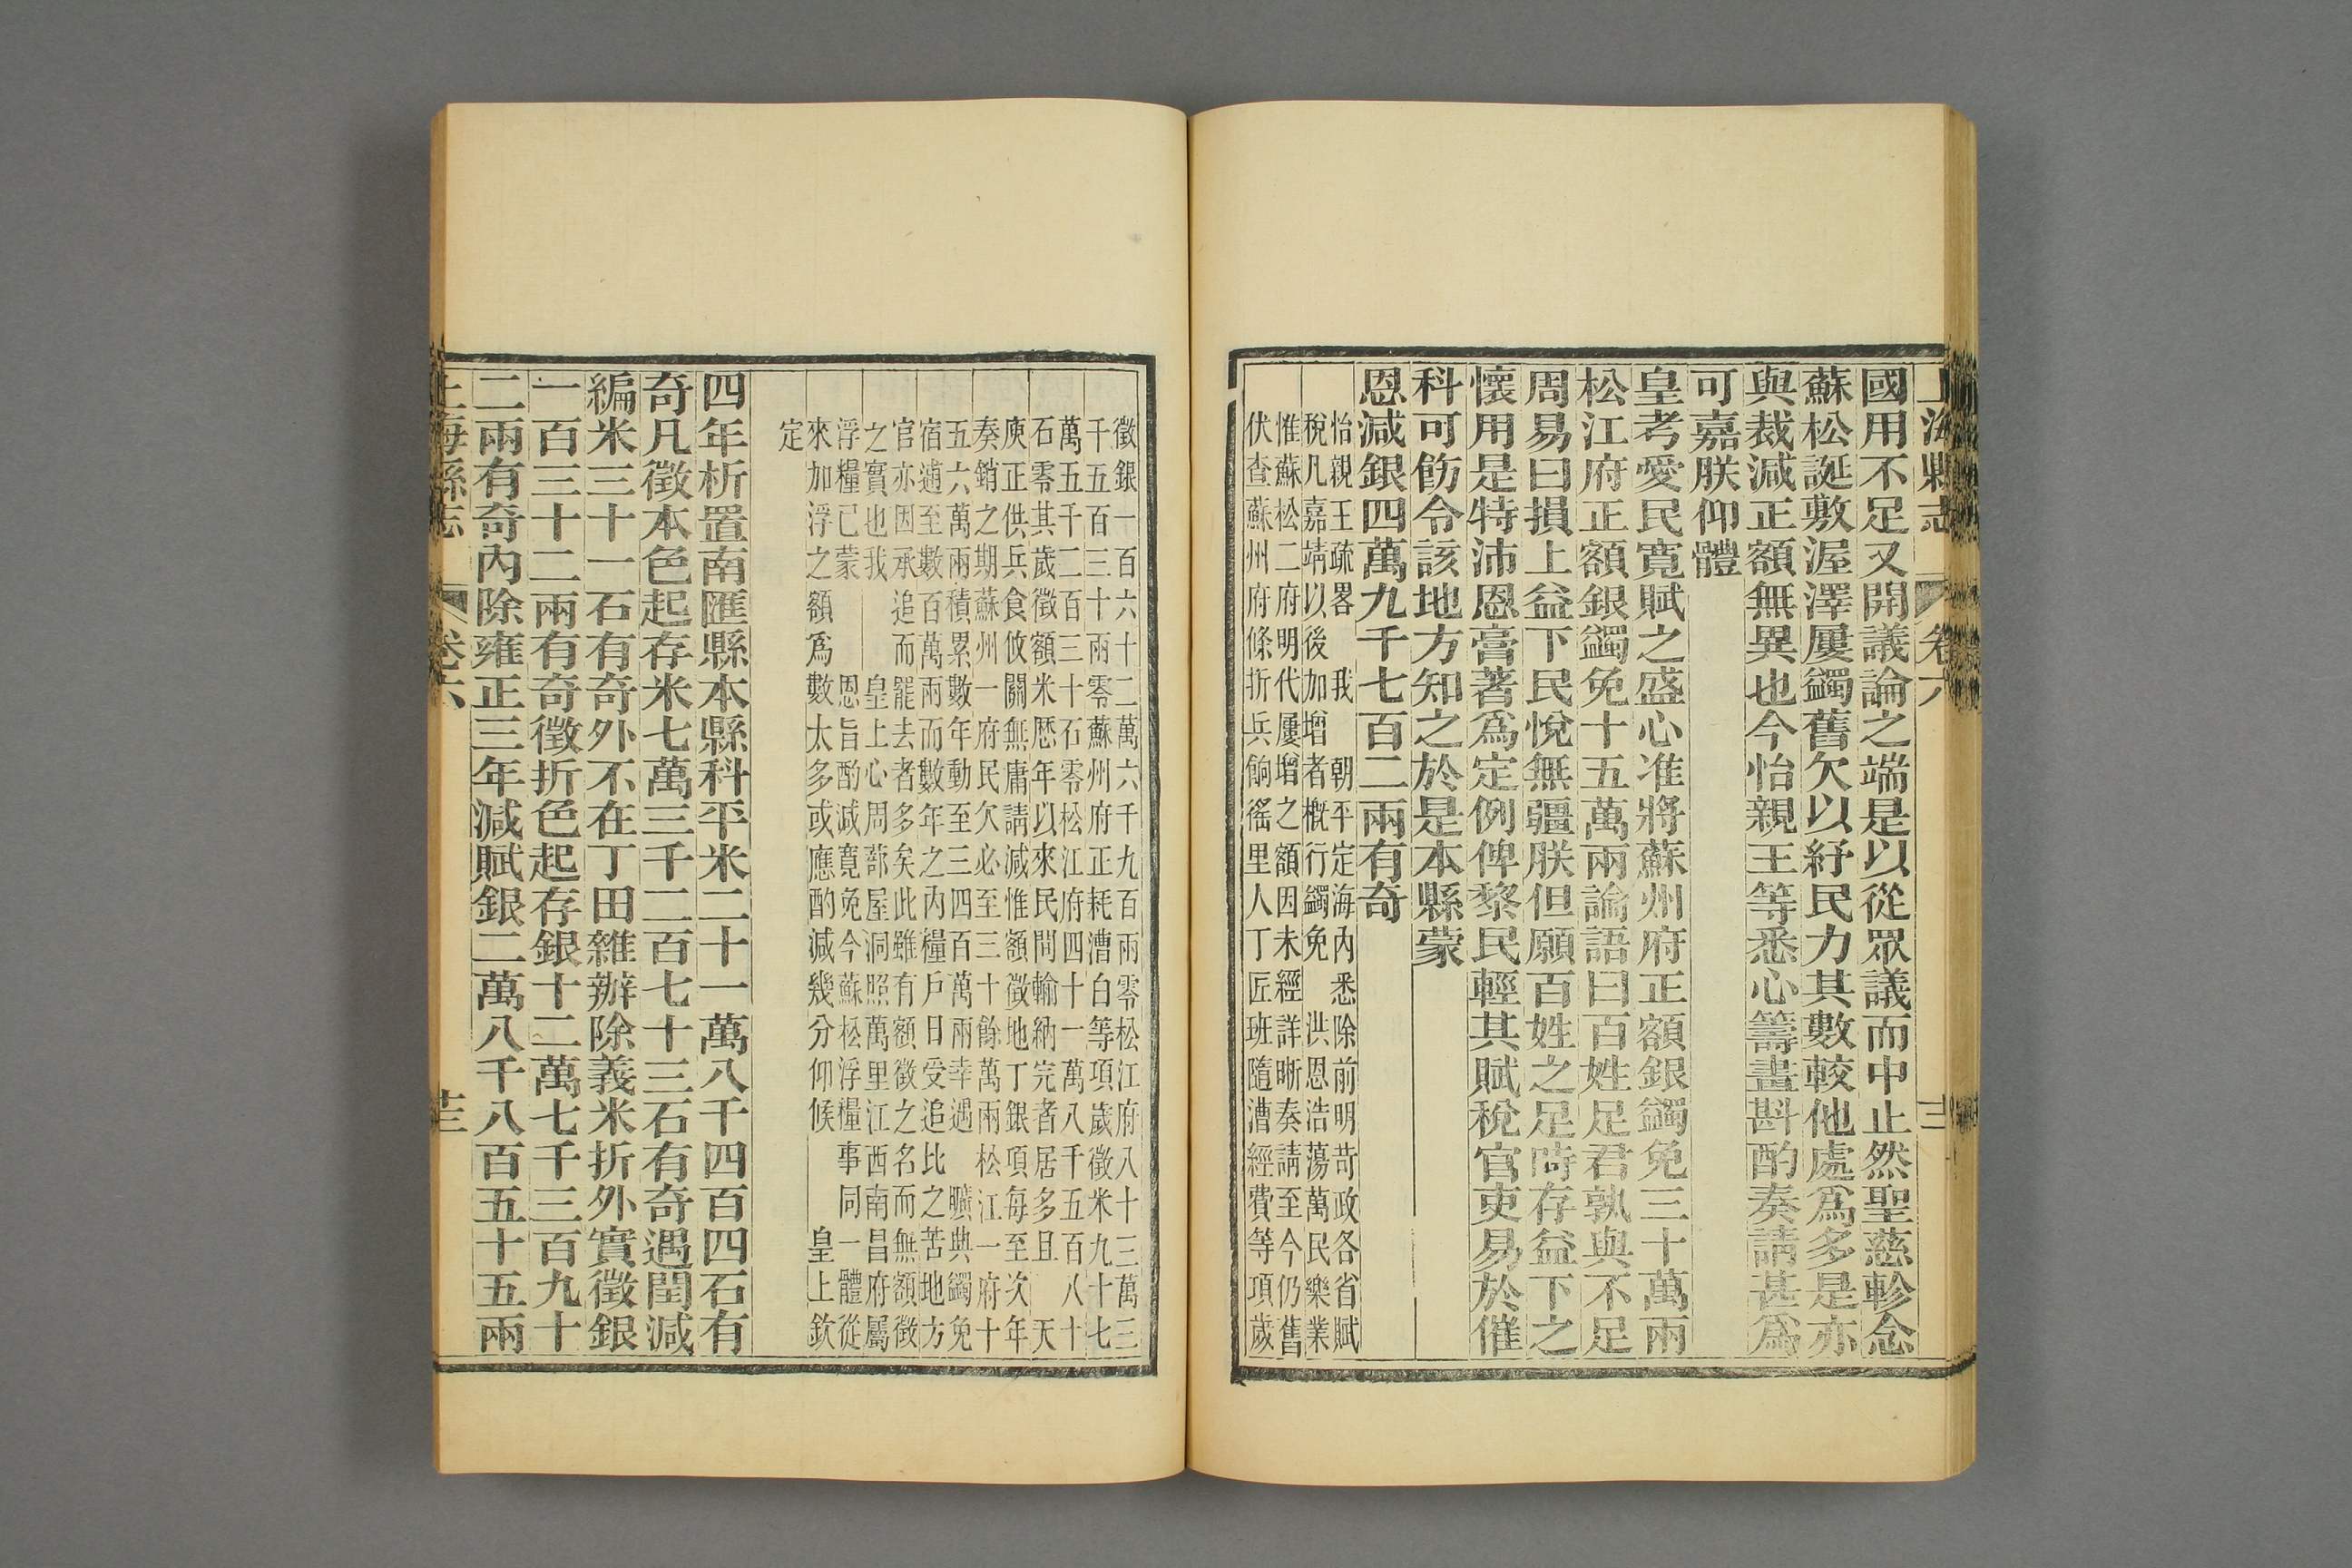 上海縣志 卷六
國用不足又開議論之端是以從眾議而中止然聖慈軫念
蘇松誕敷渥澤屢蠲舊欠以紓民力其數較他處爲多是亦
與裁減正額無異也今怡親王等悉心籌畫斟酌奏請甚爲
可嘉朕仰體
皇考愛民寬賦之盛心准將蘇州府正額銀蠲免三十萬兩
松江府正額銀蠲免十五萬兩論語曰百姓足君孰與不足
周易曰損上益下民悅無疆朕但願百姓之足時存益下之
懷用是特沛恩膏著爲定例俾黎民輕其賦稅官吏易於催
科可飭令該地方知之於是本縣蒙
恩減銀四萬九千七百二兩有奇
怡親王疏畧 我 朝平定海內悉除前明苛政各省賦
稅凡嘉靖以後加增者槪行蠲免 洪恩浩蕩萬民樂業
惟蘇松二府明代屢增之額因未經詳晰奏請至今仍舊
伏查蘇州府條折兵餉徭里人丁匠班隨漕經費等項歲
徵銀一百六十二萬六千九百兩零松江府八十三萬三
千五百三十兩零蘇州府正耗漕白等項歲徵米九十七
萬五千二百三十石零松江府四十一萬八千五百八十
石零其歲徵額米歷年以來民間輸納完者居多且 天
庾正供兵食攸關無庸請減惟額徵地丁銀項每至次年
奏銷之期蘇州一府民欠必至三十餘萬兩松江一府十
五六萬兩積累數年動至三四百萬兩幸遇 曠典蠲免
宿逋至數百萬兩而數年之內糧戶日受追比之苦地方
官亦因承追而罷去者多矣此雖有額徵之名而無額徵
之實也我 皇上心周蔀屋洞照萬里江西南昌府屬
浮糧已蒙 恩旨酌減寬免今蘇松浮糧事同一體從
來加浮之額爲數太多或應酌減幾分仰候 皇上欽
定
四年析置南匯縣本縣科平米二十一萬八千四百四石有
奇凡徵本色起存米七萬三千二百七十三石有奇遇閏減
編米三十一石有奇外不在丁田雜辦除義米折外實徵銀
一百三十二兩有奇徵折色起存銀十二萬七千三百九十
二兩有奇內除雍正三年減賦銀二萬八千八百五十五兩
上海縣志 卷六